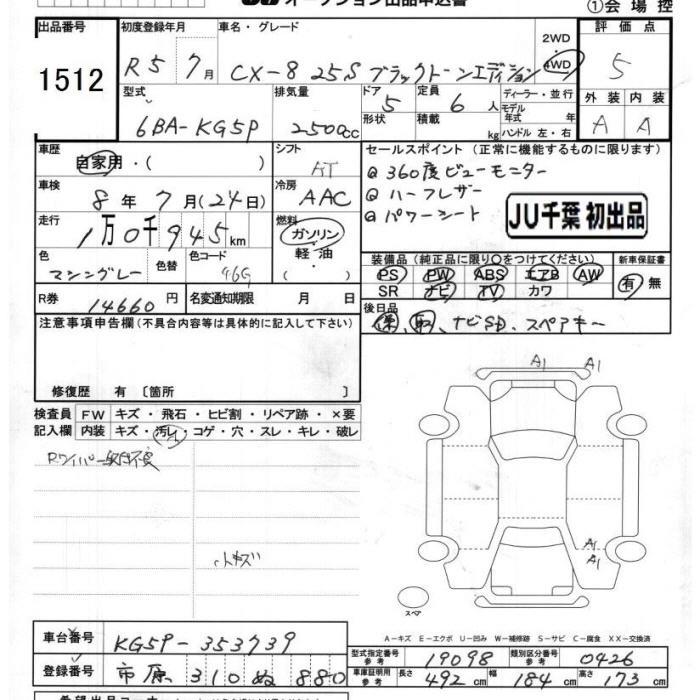 オークション出品申込書
①会場控
出品番号 初度登録年月 車名・グレード 2WD 評価点
1512 R5 7月 CX-8 25S ブラックトーンエディション 4WD 5
型式 排気量 ドア 定員 ディーラー・並行 外装 内装
6BA-KG5P 2500cc 5 6人 モデル 年式 年式 A A
形状 積載 kg ハンドル 左・右
車歴 自家用・( ) シフト AT セールスポイント(正常に機能するものに限ります)
@360度ビューモニター
車検 8年7月(24日) 冷房 AAC @ハーフレザー
@パワーシート JU千葉 初出品
走行 1万0千945km 燃料 ガソリン
軽油・
( )
色 マシングレー 色替 色コード 46G
装備品(純正品に限り○をつけてください) 新車保証書
PS PW ABS エアB AW 有 無
SR ナビ TV カワ
R券 14660円 名変通知期限 月 日
後日品
保、取、ナビSD、スペアキー
注意事項申告欄(不具合内容等は具体的に記入して下さい)
修復歴 有〔箇所 〕
検査員 FW キズ・飛石・ヒビ割・リペア跡・×要
記入欄 内装 キズ・汚レ・コゲ・穴・スレ・キレ・破レ
Rワイパー 不良
小キズ
A1 A1
A1
A1
スペア
A-キズ E-エクボ U-凹み W-補修跡 S-サビ C-腐食 XX-交換済
車台番号 KG5P-353739
登録番号 市原 310 ぬ 880
型式指定番号 参考 19098 類別区分番号 参考 0426
車庫証明用 参考 長さ 492cm 幅 184cm 高さ 173cm